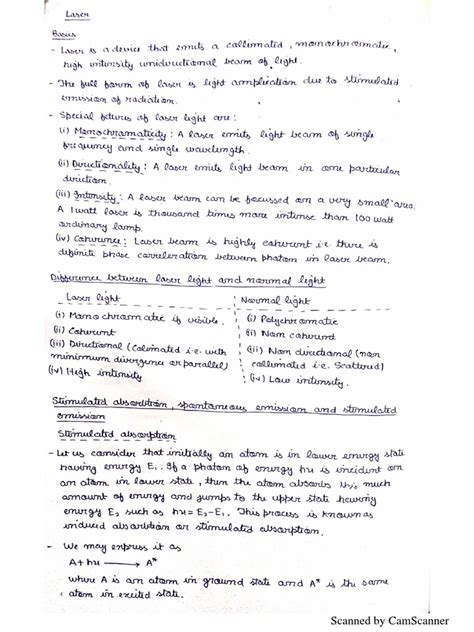 Laser
Basics
- Laser is a device that emits a collimated, monochromatic,
high intensity unidirectional beam of light.
- The full form of laser is light amplication due to stimulated
emission of radiation.
- Special fetures of laser light are:
(i) Monochromaticity: A laser emits light beam of single
frequency and single wavelength.
(ii) Directionality: A laser emits light beam in one particular
direction.
(iii) Intensity: A laser beam can be focussed on a very small area.
A 1 watt laser is thousand times more intense than 100 watt
ordinary lamp.
(iv) Coherence: Laser beam is highly coherent i.e. there is
definite phase correleration between photon in laser beam.
Difference between laser light and normal light
Laser light
Normal light
(i) Mono chromatic if visible.
(i) Polychromatic
(ii) Coherent
(ii) Non coherent
(iii) Directional (Colimated i.e. with
minimimum divergence or parallel)
(iii) Non directional (non
collimated i.e. Scattered)
(iv) High intensity
(iv) Low intensity.
Stimulated absorbtion, spontaneous emission and stimulated
emission
Stimulated absorption
- Let us consider that initially an atom is in lower energy state
having energy E₁. If a photon of energy hυ is incident on
an atom in lower state, then the atom absorbs much
amount of energy and jumps to the upper state having
energy E₂ such as hυ = E₂-E₁. This process is known as
induced absorbtion or stimulated absorption.
- We may express it as
A + hυ ⟶ A*
where A is an atom in ground state and A* is the same
atom in exicted state.
Scanned by CamScanner